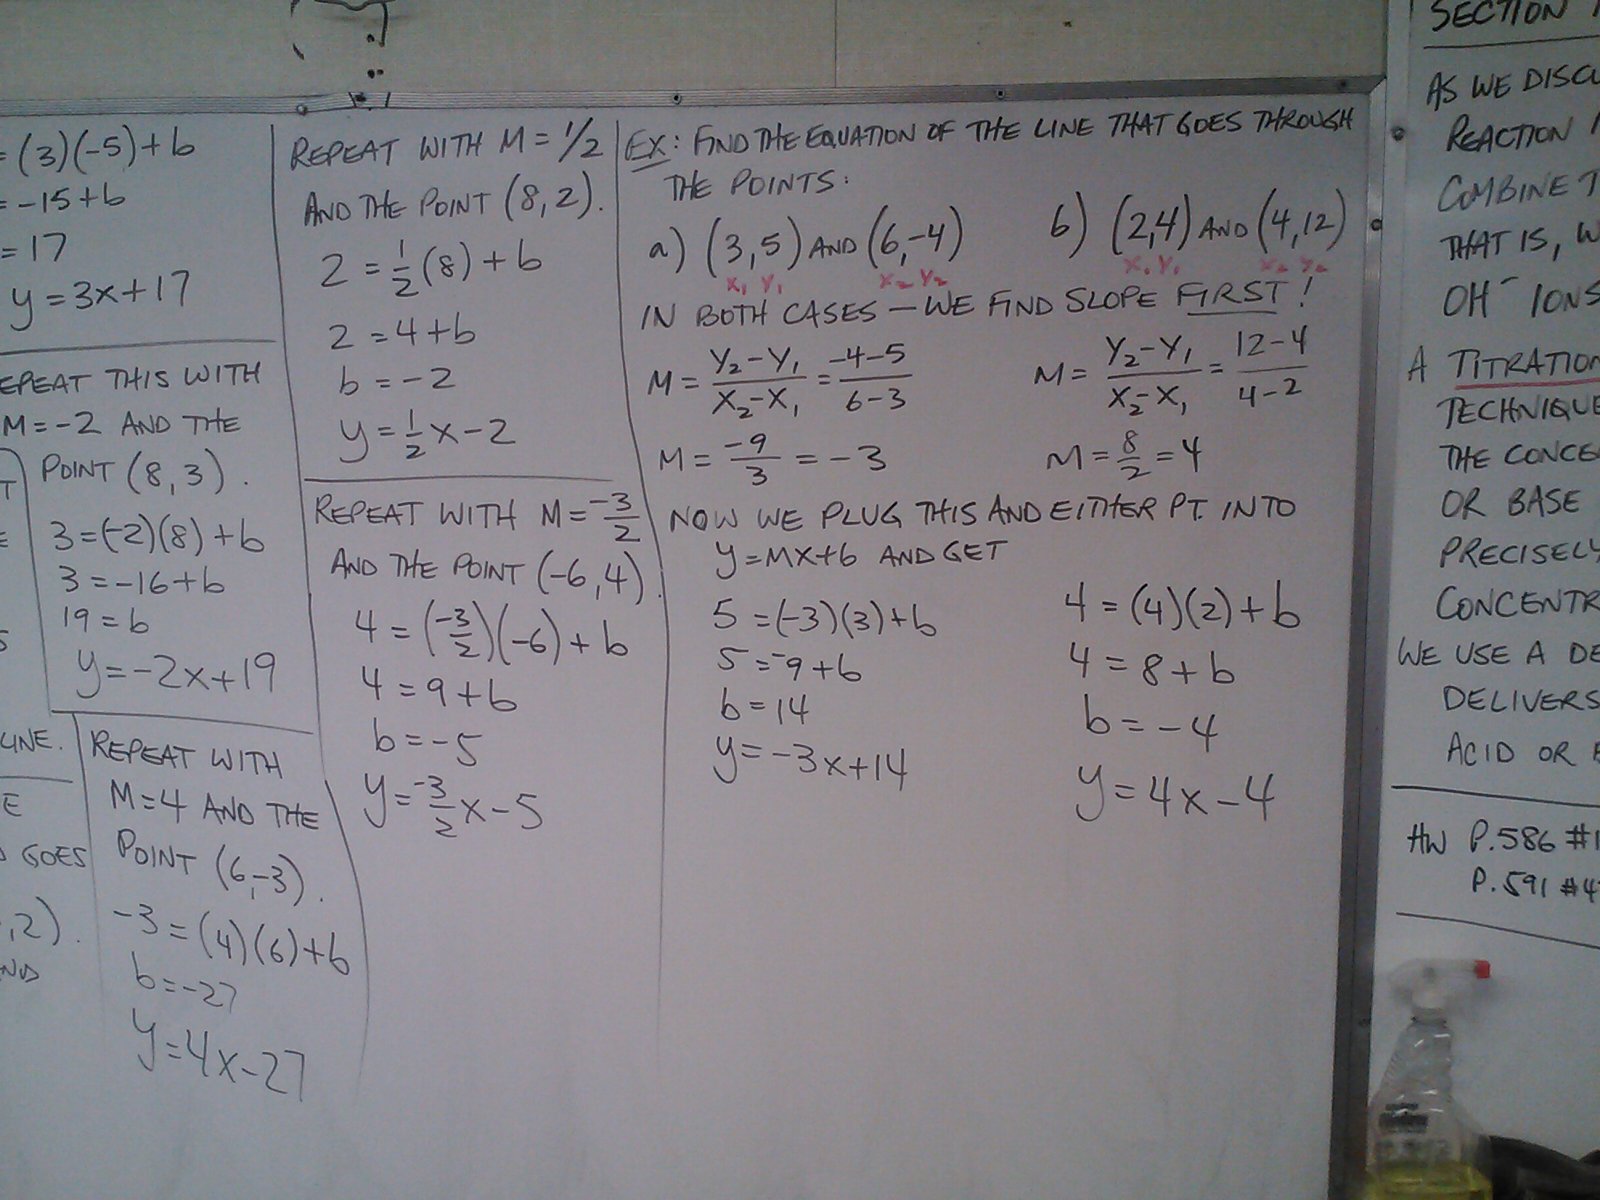 = (3)(-5)+b
= -15+b
= 17
y=3x+17
EPEAT THIS WITH
M=-2 AND THE
POINT (8,3).
3=(-2)(8)+b
3=-16+b
19=b
y=-2x+19
LINE.
E
GOES
,2).
REPEAT WITH
M=4 AND THE
POINT (6,-3).
-3=(4)(6)+b
b=-27
y=4x-27
REPEAT WITH M=1/2
AND THE POINT (8,2).
2=1/2(8)+b
2=4+b
b=-2
y=1/2x-2
REPEAT WITH M=-3/2
AND THE POINT (-6,4).
4=(-3/2)(-6)+b
4=9+b
b=-5
y=-3/2x-5
EX: FIND THE EQUATION OF THE LINE THAT GOES THROUGH
THE POINTS:
a) (3,5) AND (6,-4) b) (2,4) AND (4,12)
X₁ Y₁ X₂ Y₂ X₁ Y₁ X₂ Y₂
IN BOTH CASES — WE FIND SLOPE FIRST!
M=Y₂-Y₁/X₂-X₁=-4-5/6-3 M=Y₂-Y₁/X₂-X₁=12-4/4-2
M=-9/3=-3 M=8/2=4
NOW WE PLUG THIS AND EITHER PT. INTO
y=MX+b AND GET
5=(-3)(3)+b
5=-9+b
b=14
y=-3x+14
4=(4)(2)+b
4=8+b
b=-4
y=4x-4
SECTION
AS WE DISCU
REACTION
COMBINE T
THAT IS, W
OH⁻ IONS
A TITRATION
TECHNIQUE
THE CONCE
OR BASE
PRECISELY
CONCENTR
WE USE A DE
DELIVERS
ACID OR
HW P.586 #1
P.591 #4